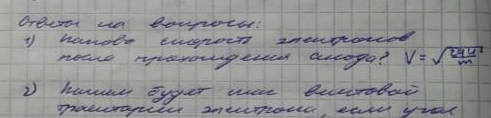 Ответы на вопросы:
1) Какова скорость электронов
после прохождения анода? V = √(2qU/m)
2) Каким будет шаг винтовой
траектории электрона, если угол